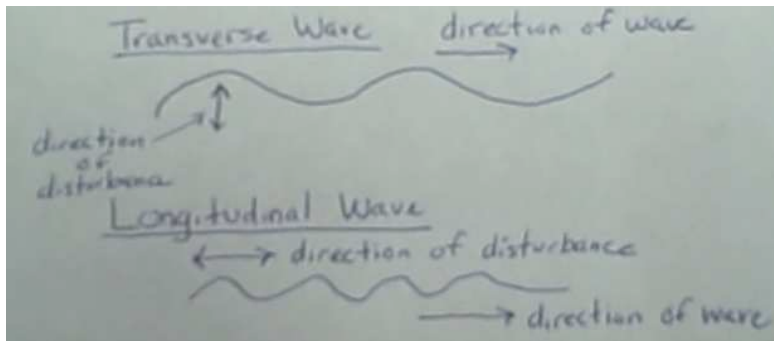 Transverse Wave
direction of wave
direction
of
disturbance
Longitudinal Wave
direction of disturbance
direction of wave